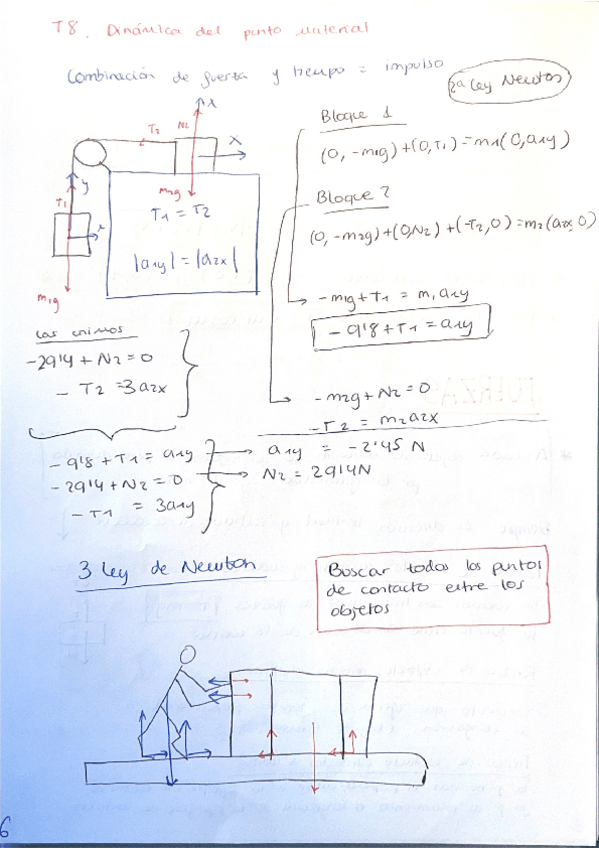 T8. Dinámica del punto material
Combinación de fuerza y tiempo = impulso
2ª Ley Newton
Bloque 1
(0, -m1g) + (0, T1) = m1(0, a1y)
Bloque 2
(0, -m2g) + (0, N2) + (-T2, 0) = m2(a2x, 0)
T2
N2
x
x
m2g
y
T1
x
m1g
T1 = T2
|a1y| = |a2x|
-m1g + T1 = m1 a1y
-9'8 + T1 = a1y
-m2g + N2 = 0
-T2 = m2a2x
-29'4 + N2 = 0
- T2 = 3a2x
-9'8 + T1 = a1y
-29'4 + N2 = 0
- T1 = 3a1y
a1y = -2'45 N
N2 = 29'4N
3 Ley de Newton
Buscar todos los puntos
de contacto entre los
objetos
6